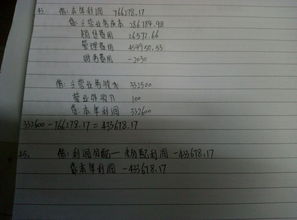 借:本年利润 766278.17
贷:主营业务成本 286784.98
销售费用 26572.66
管理费用 454950.53
财务费用 -2030
借:主营业务收入 332500
营业外收入 100
贷:本年利润 332600
332600-766278.17=433678.17
借:利润分配—未分配利润 -433678.17
贷:本年利润 -433678.17